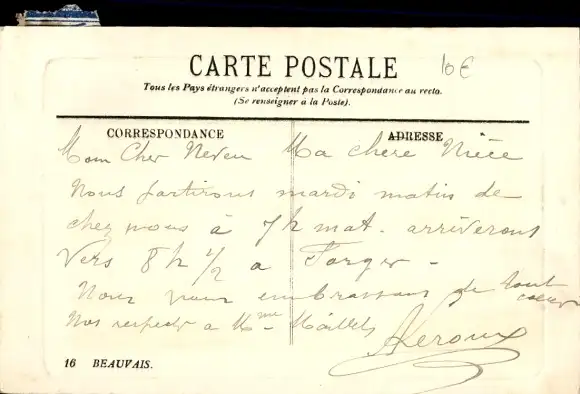 10€
CARTE POSTALE
Tous les Pays étrangers n'acceptent pas la Correspondance au recto.
(Se renseigner à la Poste).
CORRESPONDANCE
ADRESSE
Mon Cher Neveu Ma chere Nièce
Nous partirons mardi matin de
chez nous à 7h mat. arriverons
vers 8h 1/2 a Forges -
Nous vous embrassons de tout
coeur
Nos respects a Mme
16 BEAUVAIS.